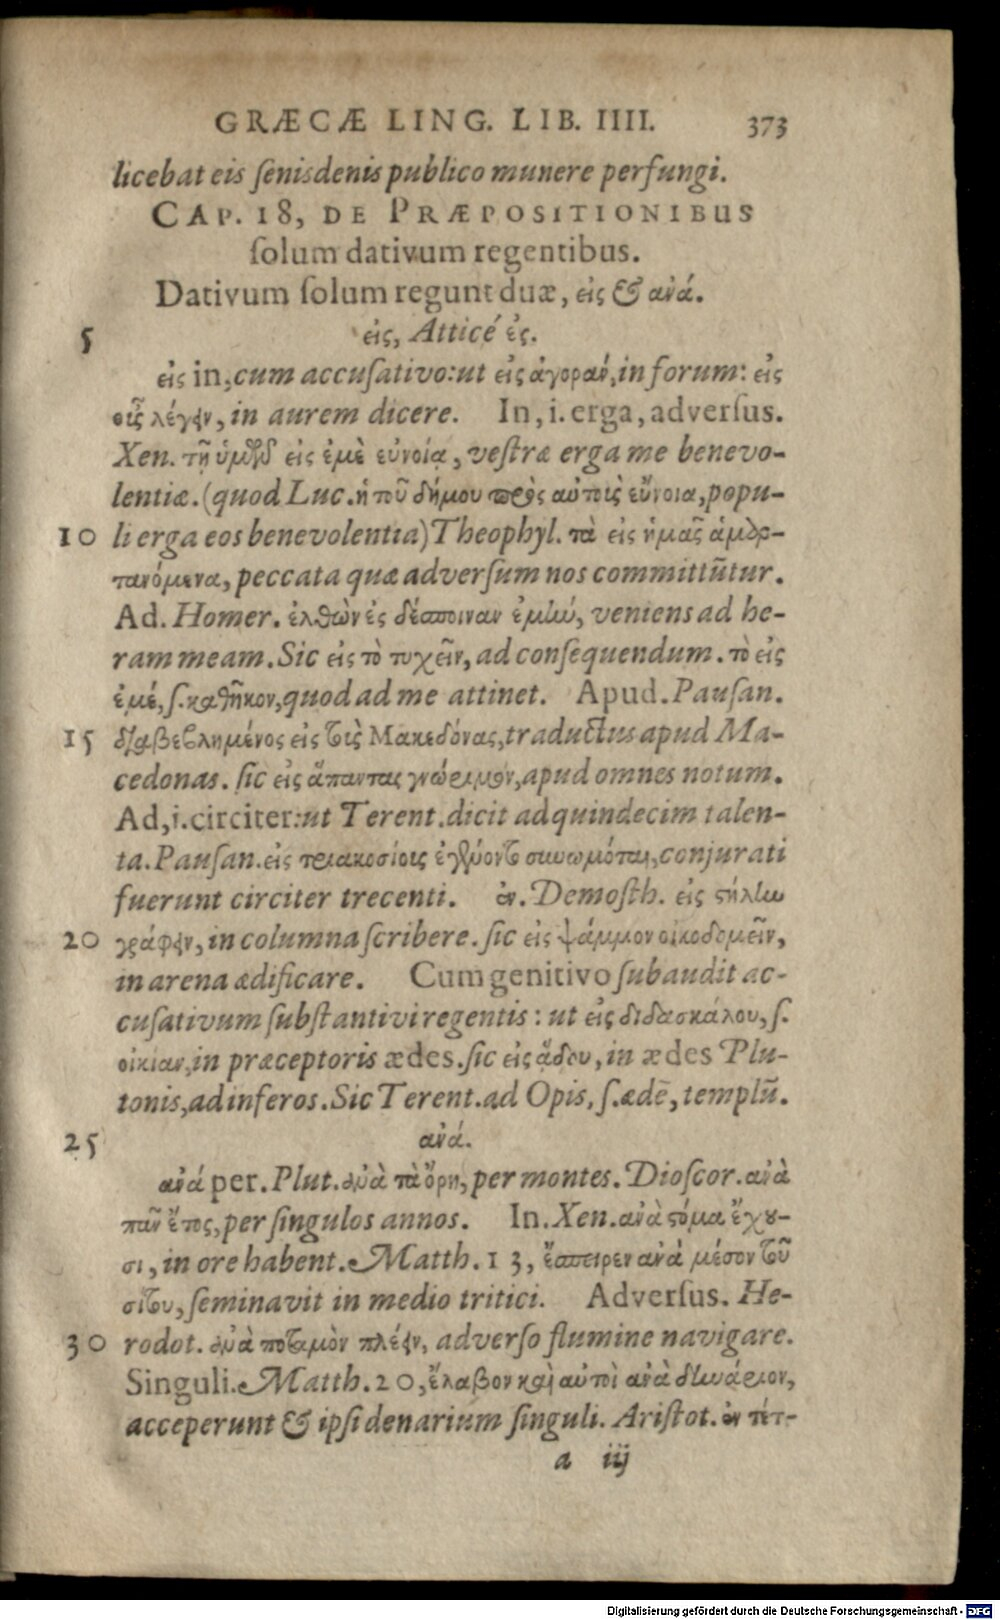 GRÆCÆ LING. LIB. IIII. 373
licebat eis ſenisdenis publico munere perfungi.
CAP. 18, DE PRÆPOSITIONIBUS
ſolum dativum regentibus.
Dativum ſolum regunt duæ, εἰς & ἀνά.
5 εἰς, Atticé ἐς.
εἰς in, cum accuſativo: ut εἰς ἀγορὰν, in forum: εἰς
οὖς λέγειν, in aurem dicere. In, i. erga, adverſus.
Xen. τῇ ὑμῶν εἰς ἐμὲ εὐνοίᾳ, veſtræ erga me benevo-
lentiæ. (quod Luc. ἡ τοῦ δήμου πρὸς αὐτοὺς εὔνοια, popu-
10 li erga eos benevolentia) Theophyl. τὰ εἰς ἡμᾶς ἁμαρ-
τανόμενα, peccata quæ adverſum nos committũtur.
Ad. Homer. ἐλθὼν ἐς δέσποιναν ἐμὴν, veniens ad he-
ram meam. Sic εἰς τὸ τυχεῖν, ad conſequendum. τὸ εἰς
ἐμέ, ſ. καθῆκον, quod ad me attinet. Apud. Pauſan.
15 διαβεβλημένος εἰς τοὺς Μακεδόνας, traductus apud Ma-
cedonas. ſic εἰς ἅπαντας γνώριμον, apud omnes notum.
Ad, i. circiter: ut Terent. dicit ad quindecim talen-
ta. Pauſan. εἰς τριακοσίους ἐγένοντο συνωμόται, conjurati
fuerunt circiter trecenti. ἐν. Demoſth. εἰς στήλην
20 γράφειν, in columna ſcribere. ſic εἰς ψάμμον οἰκοδομεῖν,
in arena ædificare. Cum genitivo ſubaudit ac-
cuſativum ſubſtantivi regentis: ut εἰς διδασκάλου, ſ.
οἰκίαν, in præceptoris ædes. ſic εἰς ᾅδου, in ædes Plu-
tonis, ad inferos. Sic Terent. ad Opis, ſ. ædẽ, templũ.
25 ἀνά.
ἀνά per. Plut. ἀνὰ τὰ ὄρη, per montes. Dioſcor. ἀνὰ
πᾶν ἔτος, per ſingulos annos. In. Xen. ἀνὰ στόμα ἔχου-
σι, in ore habent. Matth. 13, ἔσπειρεν ἀνὰ μέσον τοῦ
σίτου, ſeminavit in medio tritici. Adverſus. He-
30 rodot. ἀνὰ ποταμὸν πλέειν, adverſo flumine navigare.
Singuli. Matth. 20, ἔλαβον καὶ αὐτοὶ ἀνὰ δηνάριον,
acceperunt & ipſi denarium ſinguli. Ariſtot. ἐν τέτ-
a iij
Digitalisierung gefördert durch die Deutsche Forschungsgemeinschaft - DFG